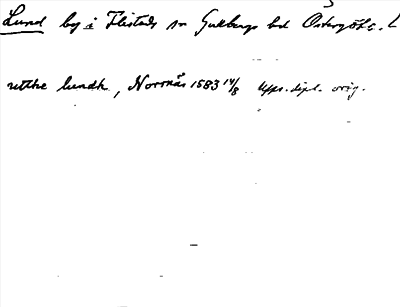 Lund by i Flistads sn Gullbergs hd Östergötl. L
uttke lundh, Norrnäs 1583 14/8 Upps. dipl. orig.